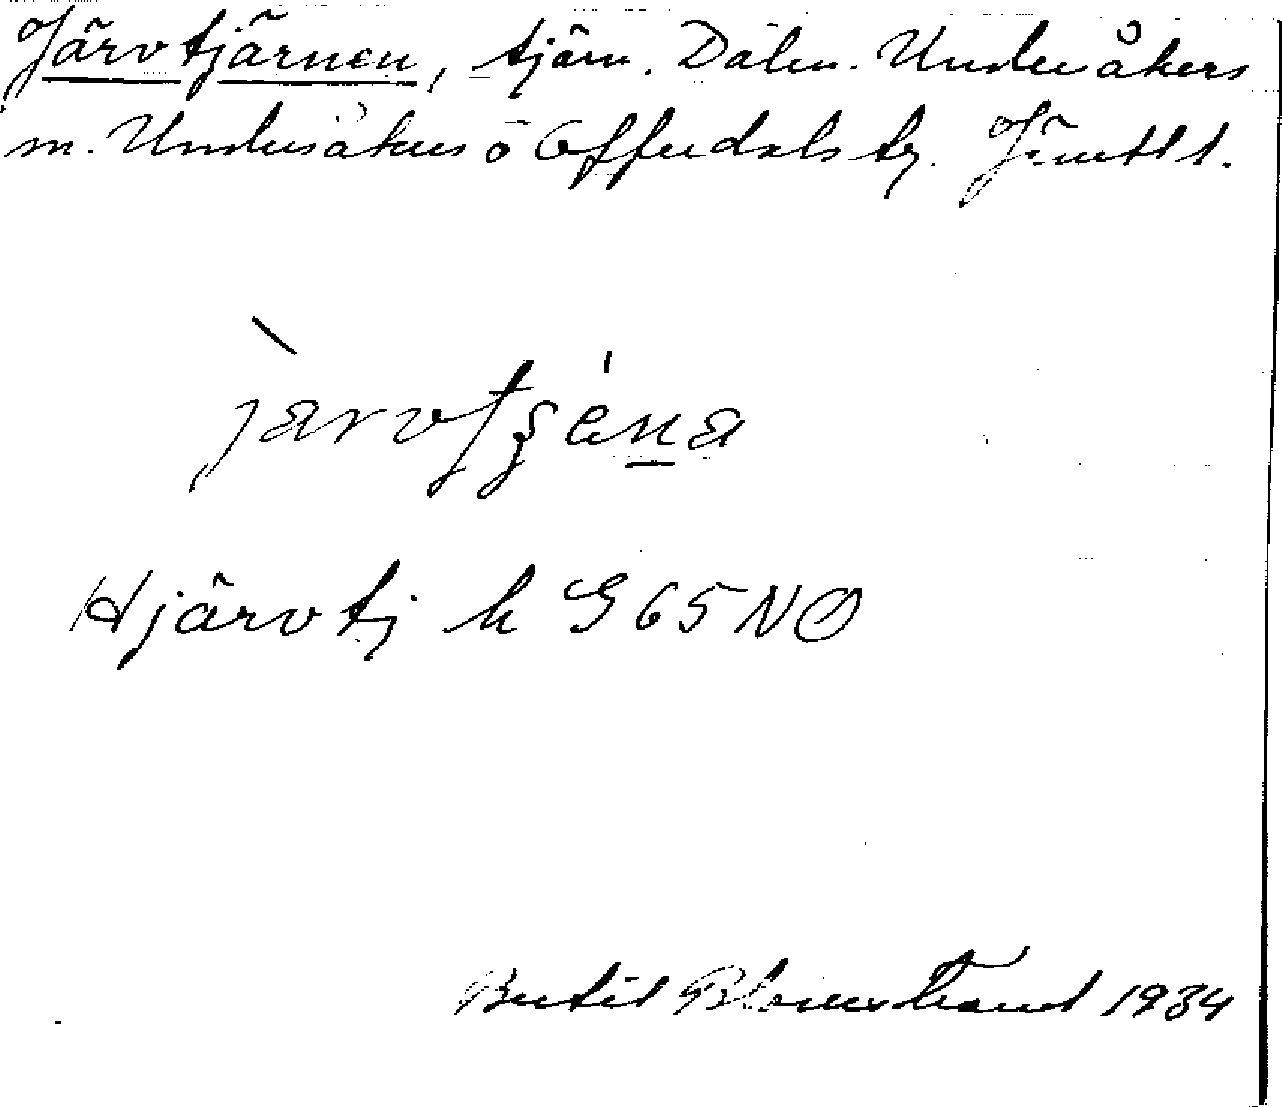 Järvtjärnen, tjärn. Dalen. Undersåkers
sn. Undersåkers o Offerdals tg. Jämtl l.
Hjärvtj k G65NO
Bertil Blomstrand 1934